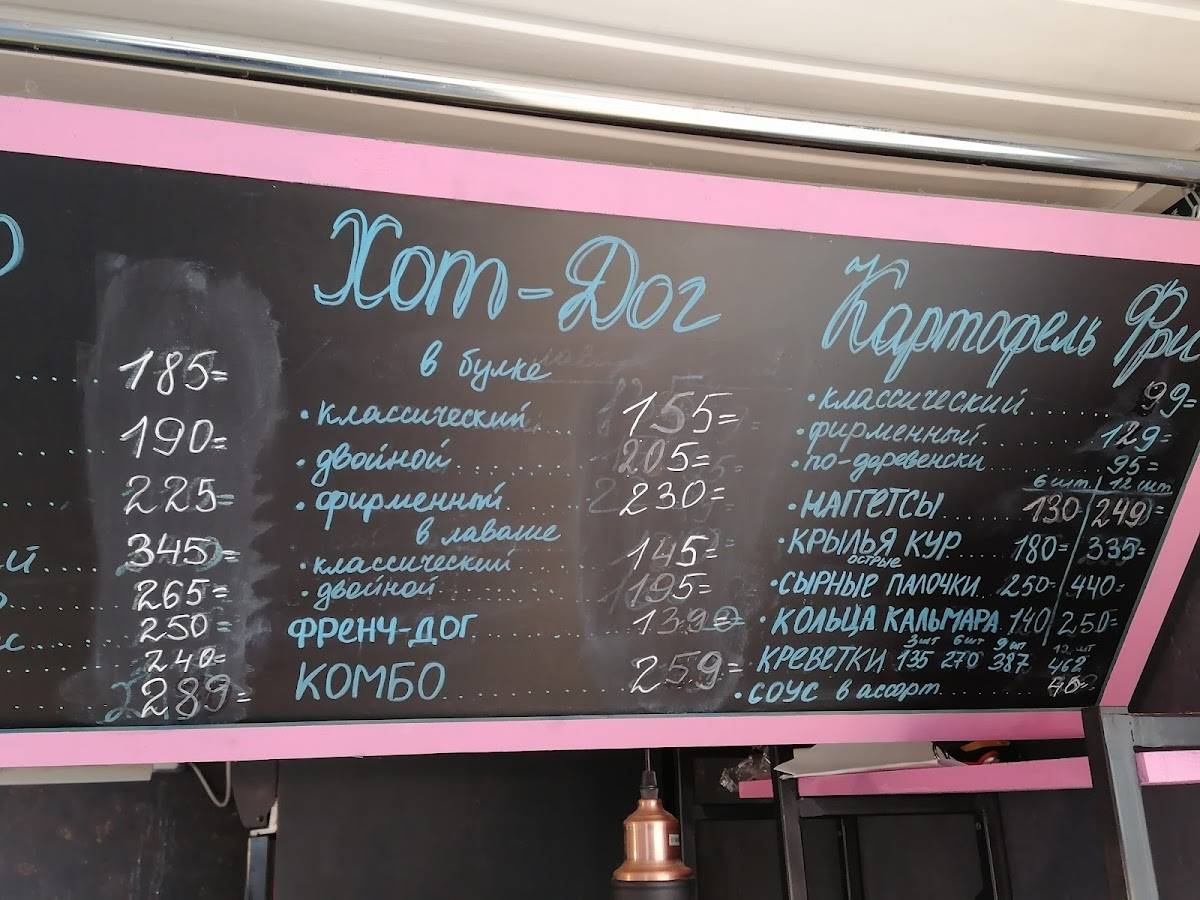 185=
190=
225=
345=
265=
250=
240=
289=
Хот-Дог
в булке
• классический 155=
• двойной 205=
• фирменный 230=
в лаваше
• классический 145=
• двойной 195=
ФРЕНЧ-ДОГ 139=
КОМБО 259=
Картофель Фри
• классический 99=
• фирменный 129=
• по-деревенски 95=
6 шт. 12 шт
• НАГГЕТСЫ 130 249=
• КРЫЛЬЯ КУР 180= 335=
острые
• СЫРНЫЕ ПАЛОЧКИ 250= 440=
• КОЛЬЦА КАЛЬМАРА 140 250=
3 шт 6 шт 9 шт 12 шт
• КРЕВЕТКИ 135 270 387 462
• СОУС в ассорт.